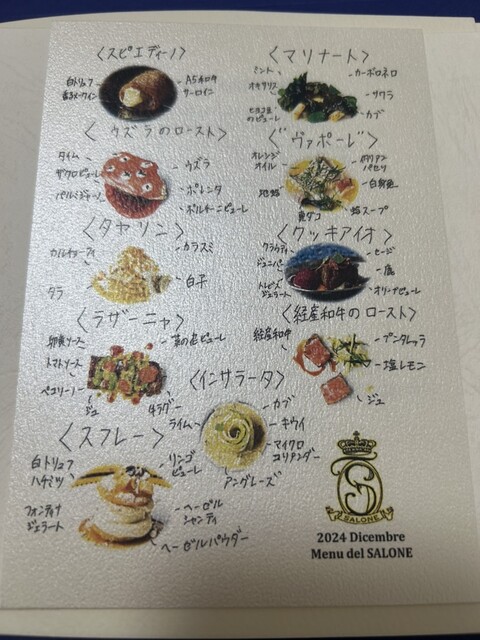 〈スピエディーノ〉
白トリュフ
A5キロタ
サーロイン
〈マリナート〉
ミント
オキザリス
ヒヨコ豆
のピューレ
カーボロネロ
サワラ
カブ
〈ウズラのロースト〉
タイム
ザクロピューレ
パルミジャーノ
ウズラ
ポレンタ
ポルチーニピューレ
〈ヴァポーレ〉
オレンジ
オイル
地蛤
真ダコ
イタリアン
パセリ
白身魚
蛤スープ
〈タヤリン〉
カルチョーフィ
タラ
カラスミ
白子
〈クッキアイオ〉
クラウティ
ジュニパー
トレビス
ジェラート
セージ
鹿
オリーブピューレ
〈ラザーニャ〉
卵黄ソース
トマトソース
ペコリーノ
ジュ
菜の花ピューレ
牛ラグー
〈経産和牛のロースト〉
経産和牛
プンタレッラ
塩レモン
ジュ
〈インサラータ〉
ライム
カブ
キウイ
マイクロ
コリアンダー
アングレーズ
〈スフレー〉
白トリュフ
ハチミツ
フォンティナ
ジェラート
リンゴ
ピューレ
ヘーゼル
シャンティ
ヘーゼルパウダー
SALONE
2024 Dicembre
Menu del SALONE